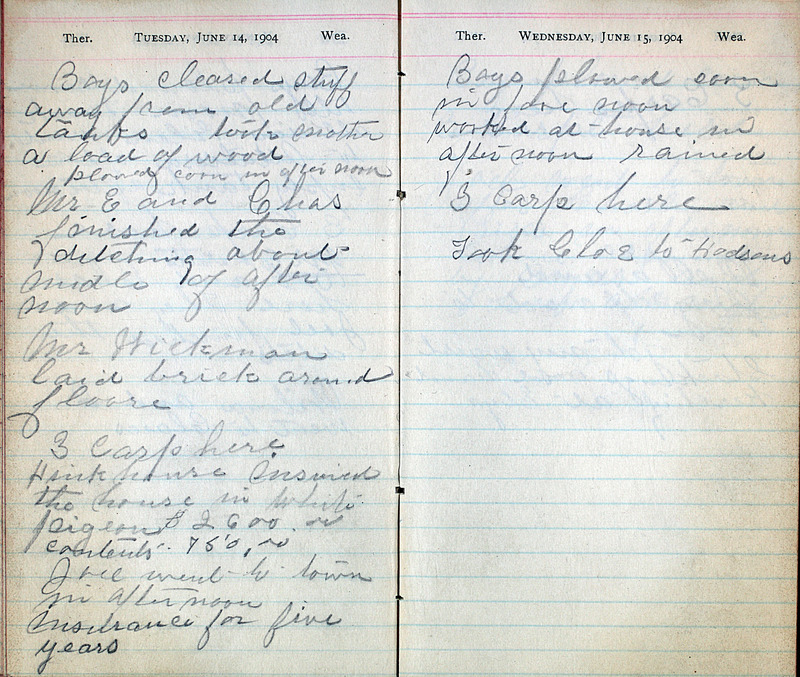 Ther. TUESDAY, JUNE 14, 1904 Wea.
Boys cleared stuff
away from old
tanks took mother
a load of wood
plowed corn in after noon
Mr E and Chas
finished the
ditching about
midle of after
noon
Mr Hickman
laid brick around
floore
3 Carp here
Hinkhouse insured
the house in White
pigeon $2600.00
contents. 750,00
went to town
in after noon
Insurance for five
years
Ther. WEDNESDAY, JUNE 15, 1904 Wea.
Boys plowed corn
in fore noon
worked at house in
after noon rained
3 Carp here
Took Cloe to Hodsons